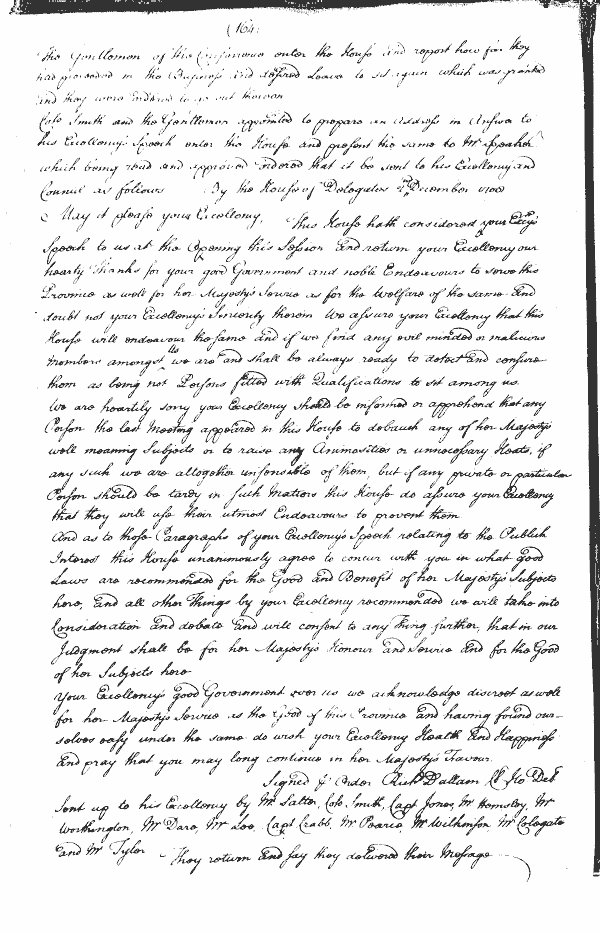 (164)
The Gentlemen of the Conference enter the House and report how far they
had proceeded in the Business and desired Leave to sit again which was granted
and they were ordered to go out thereon
Colo Smith and the Gentlemen appointed to prepare an Address in Answer to
his Excellency's Speech enter the House and present the same to Mr Speaker
which being read and approved ordered that it be sent to his Excellency and
Council as follows By the House of Delegates December
May it please your Excellency, This House hath considered your Excys
Speech to us at the Opening this Session and return your Excellency our
hearty Thanks for your good Government and noble Endeavours to serve this
Province as well for her Majesty's Service as for the Welfare of the same And
doubt not your Excellency's Sincerity therein We assure your Excellency that this
House will endeavour the same and if we find any evil minded or malicious
members amongst us we are and shall be always ready to detect and censure
them as being not Persons fitted with Qualifications to sit among us
We are heartily sorry your Excellency should be informed or apprehend that any
Person the last Meeting appeared in this House to debauch any of her Majesty's
well meaning Subjects or to raise any Animosities or unnecessary Heats, if
any such we are altogether unsensible of them, but if any private or particular
Person should be tardy in such Matters this House do assure your Excellency
that they will use their utmost Endeavours to prevent them
And as to those Paragraphs of your Excellency's Speech relating to the Publick
Interest this House unanimously agree to concur with you in what good
Laws are recommended for the Good and Benefit of her Majesty's Subjects
here, and all other Things by your Excellency recommended we will take into
Consideration and debate And will consent to any Thing further, that in our
Judgment shall be for her Majesty's Honour and Service And for the Good
of her Subjects here
Your Excellency's good Government over us we acknowledge discreet as well
for her Majesty's Service as the Good of this Province and having found our-
selves easy under the same do wish your Excellency Health and Happiness
and pray that you may long continue in her Majesty's Favour.
Signed p Order Richd Dallam Cl Ho Del
Sent up to his Excellency by Mr Salter, Colo. Smith, Capt Jones, Mr Hemsley, Mr
Worthington, Mr Dare, Mr Lee, Capt Crabb, Mr Pearce, Mr Wilkinson Mr Colegate
and Mr Tyler They return and say they delivered their Message